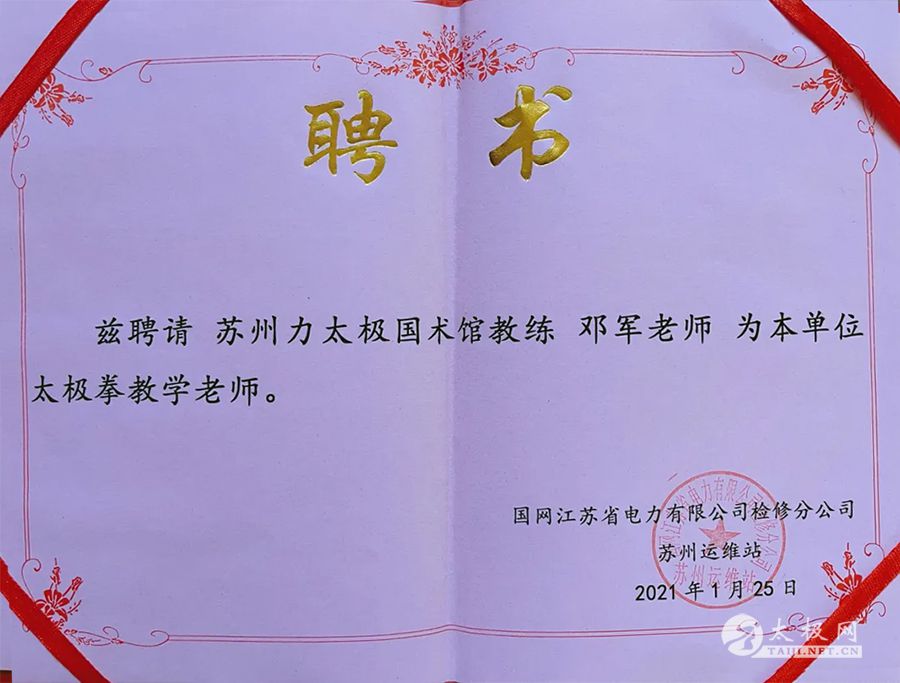 聘书
兹聘请 苏州力太极国术馆教练 邓军老师 为本单位
太极拳教学老师。
国网江苏省电力有限公司检修分公司
苏州运维站
2021 年 1 月 25 日
国网江苏省电力有限公司检修分公司
苏州运维站
太极网
TAIJI.NET.CN